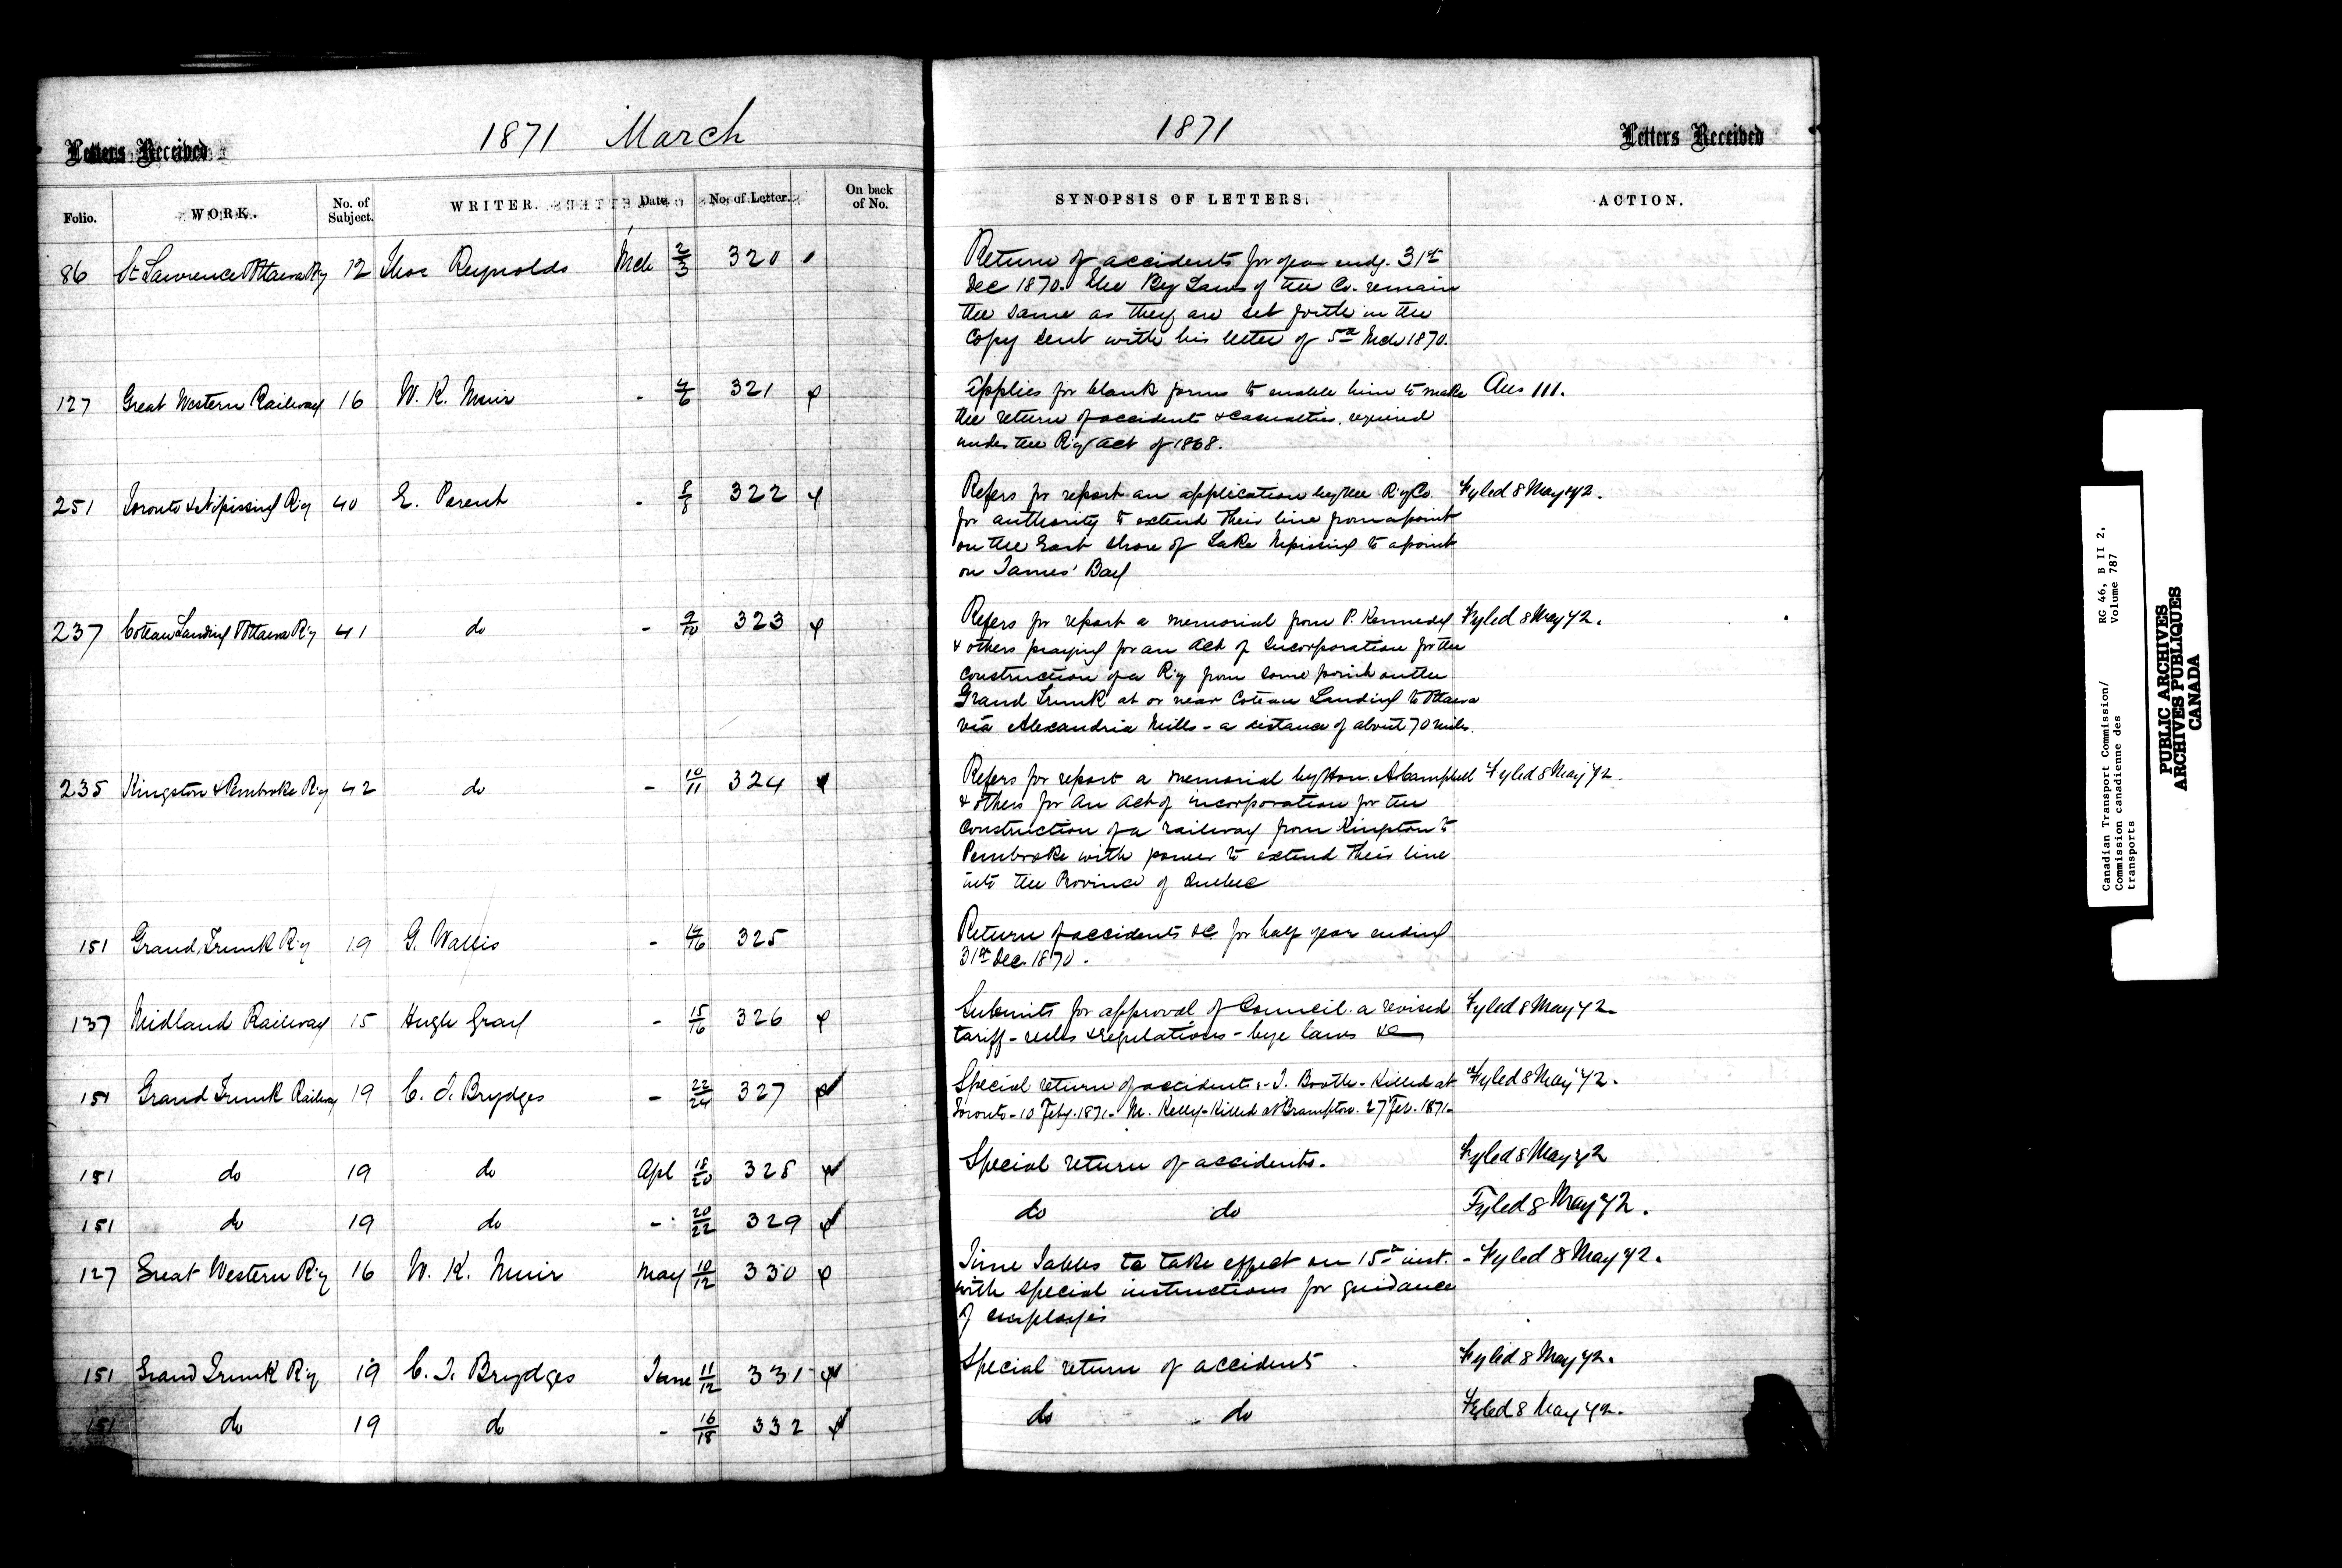 Letters Received
1871 March
Folio. WORK. No. of Subject. WRITER. Date. No. of Letter. On back of No.
86 St Lawrence & Ottawa Ry 12 Thos Reynolds Mch 2/3 320
127 Great Western Railway 16 W. K. Muir - 4/6 321
251 Toronto & Nipissing R'y 40 E. Parent - 8/8 322
237 Coteau Landing & Ottawa R'y 41 do - 9/10 323
235 Kingston & Pembroke R'y 42 do - 10/11 324
151 Grand Trunk R'y 19 G. Wallis - 14/16 325
137 Midland Railway 15 Hugh Gray - 15/16 326
151 Grand Trunk Railway 19 C. J. Brydges - 22/24 327
151 do 19 do Apl 18/20 328
151 do 19 do - 20/22 329
127 Great Western R'y 16 W. K. Muir May 10/12 330
151 Grand Trunk R'y 19 C. J. Brydges June 11/12 331
151 do 19 do - 16/18 332
1871
Letters Received
SYNOPSIS OF LETTERS. ACTION.
Return of accidents for year endg. 31st
Dec 1870. The Bye Laws of the Co. remain
the same as they are set forth in the
Copy sent with his letter of 5th Mch 1870.
Applies for blank forms to enable him to make Ans 111.
the return of accidents & casualties, required
under the R'y Act of 1868.
Refers for report an application by the R'y Co. Fyled 8 May 72.
for authority to extend their line from a point
on the East shore of Lake Nipissing to a point
on James' Bay
Refers for report a memorial from P. Kennedy Fyled 8 May 72.
& others praying for an Act of Incorporation for the
construction of a R'y from some point on the
Grand Trunk at or near Coteau Landing to Ottawa
via Alexandria Mills - a distance of about 70 miles.
Refers for report a memorial by Hon. A. Campbell Fyled 8 May 72.
& others for an Act of incorporation for the
construction of a railway from Kingston to
Pembroke with power to extend their line
into the Province of Quebec
Return of accidents &c. for half year ending
31st Dec. 1870.
Submits for approval of Council a revised Fyled 8 May 72.
tariff - rules & regulations - bye laws &c
Special return of accidents - J. Booth - Killed at Fyled 8 May 72.
Toronto - 10 Feby. 1871 - M. Kelly - Killed at Brampton. 27 Feb. 1871 -
Special return of accidents. Fyled 8 May 72
do do Fyled 8 May 72.
Time Tables to take effect on 15th inst. - Fyled 8 May 72.
with special instructions for guidance
of employés
Special return of accidents Fyled 8 May 72.
do do Fyled 8 May 72.
Canadian Transport Commission/ RG 46, B II 2,
Commission canadienne des Volume 787
transports
PUBLIC ARCHIVES
ARCHIVES PUBLIQUES
CANADA